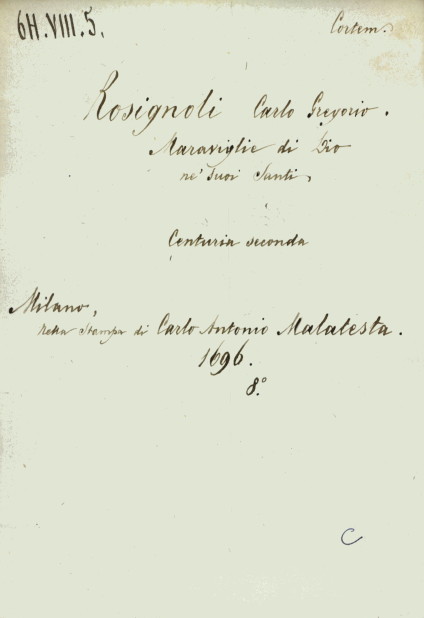 6H.VIII.5.
Cortem.
Rosignoli Carlo Gregorio.
Maraviglie di Dio
ne' suoi Santi,
Centuria seconda
Milano,
nella Stampa di Carlo Antonio Malatesta.
1696.
8.º
C